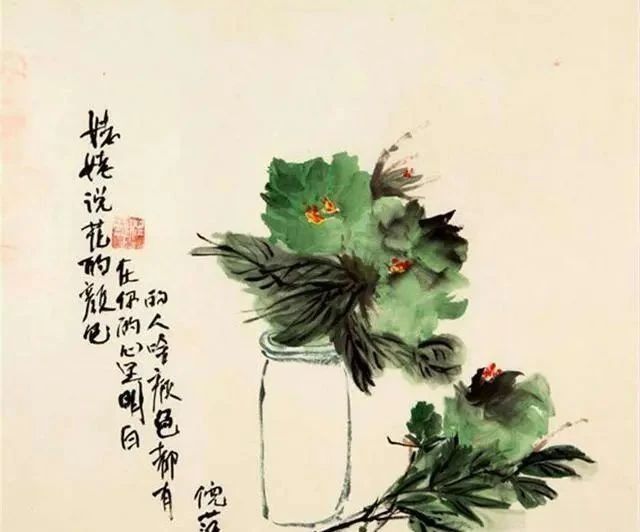 姥姥说花的颜色
在你的心里明白
的人啥颜色都有
倪